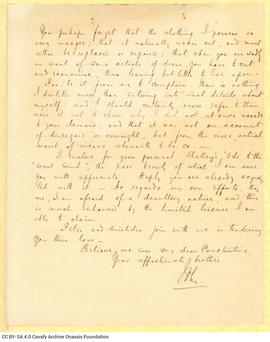 You perhaps forget that the clothing I possess is
very meagre; that it naturally wears out, and must
either be replaced or repaired; that when you are sadly
in want of some articles of dress, you have to cut
and economise, thus leaving but little to live upon.
Far be it from me to complain. There is nothing
I dislike more than entering into such details about
myself; and I should certainly never refer to them
were it not to show why I did not at once accede
to your demand; and that it was not on account
of disregard or oversight, but from the mere, actual
want of means, wherewith to do so. —
I enclose for your perusal Shelley's "Ode to the
West Wind", the rare beauty of which I am sure
you will appreciate. Haply you are already acquain-
ted with it. — As regards my own efforts, they
are, I am afraid of a desultory nature; and this
is much enhanced by the limited leisure I am
able to claim.
Peter and Aristides join with me in tendering
you their love —
Believe me ever, my dear Constantine,
Your affectionate brother
CC BY- SA 4.0 Cavafy Archive Onassis Foundation